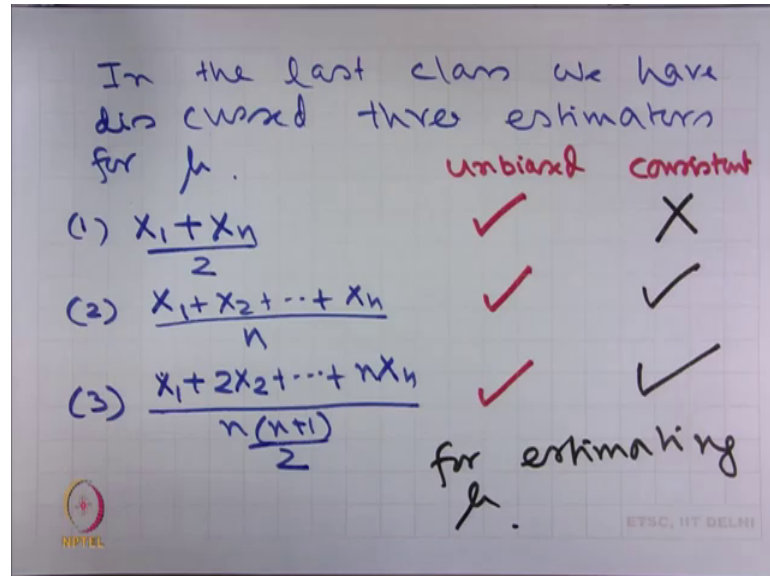 In the last class we have
discussed three estimators
for μ.
unbiased consistent
(1) X₁ + Xₙ / 2 ✓ ✗
(2) X₁ + X₂ + ··· + Xₙ / n ✓ ✓
(3) X₁ + 2X₂ + ··· + nXₙ / n(n+1)/2 ✓ ✓
for estimating
μ.
NPTEL
ETSC, IIT DELHI